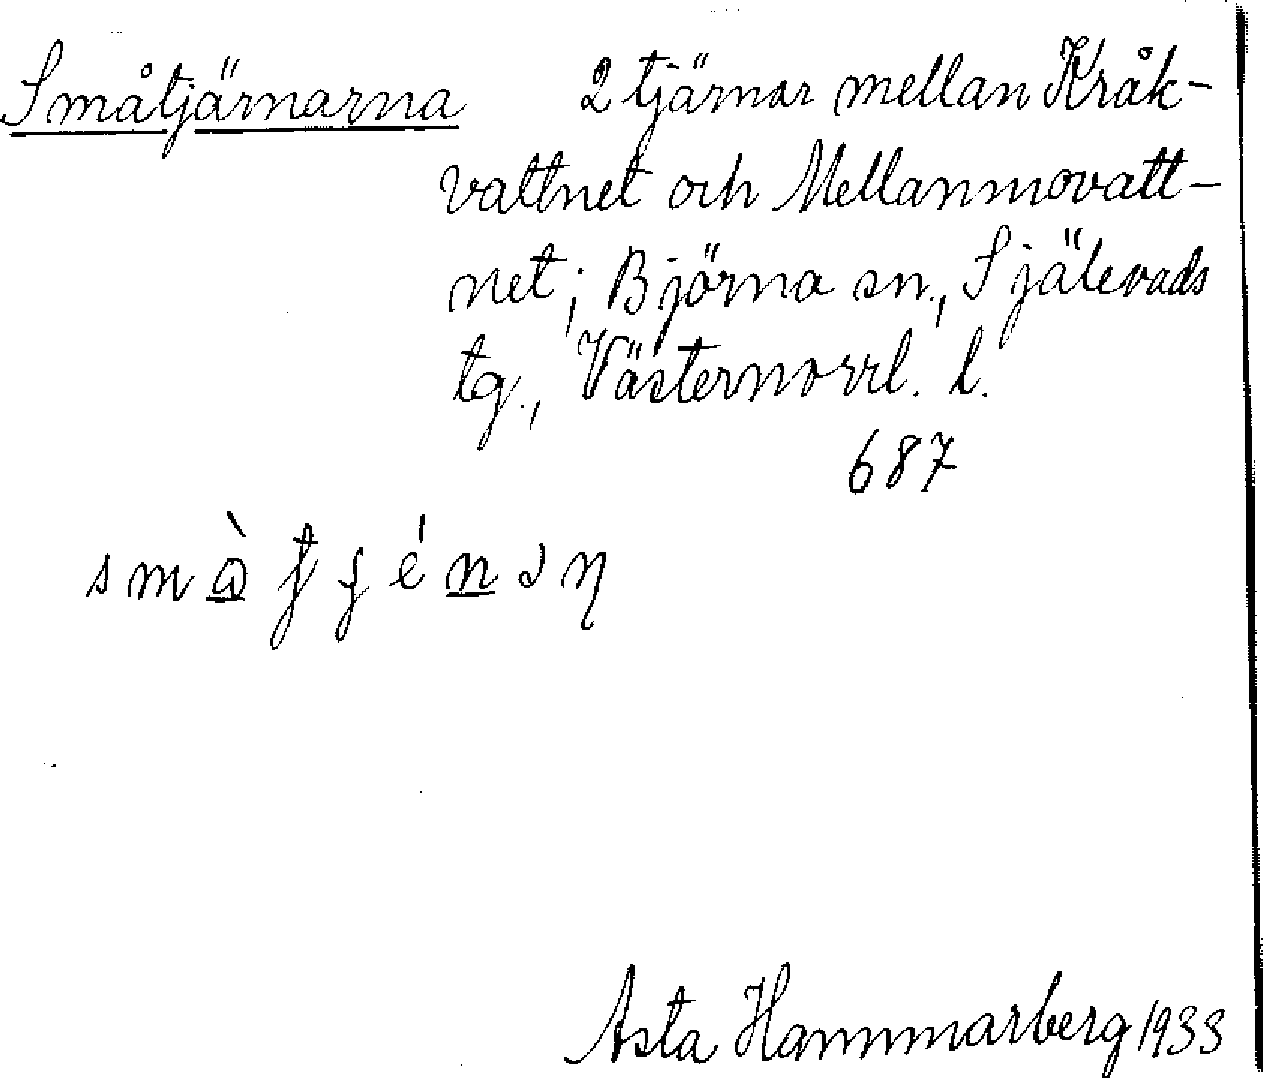 Småtjärnarna 2 tjärnar mellan Kråk-
vattnet och Mellanmovatt-
net; Björna sn., Själevads
tg., Västernorrl. l.
687
Asta Hammarberg 1933